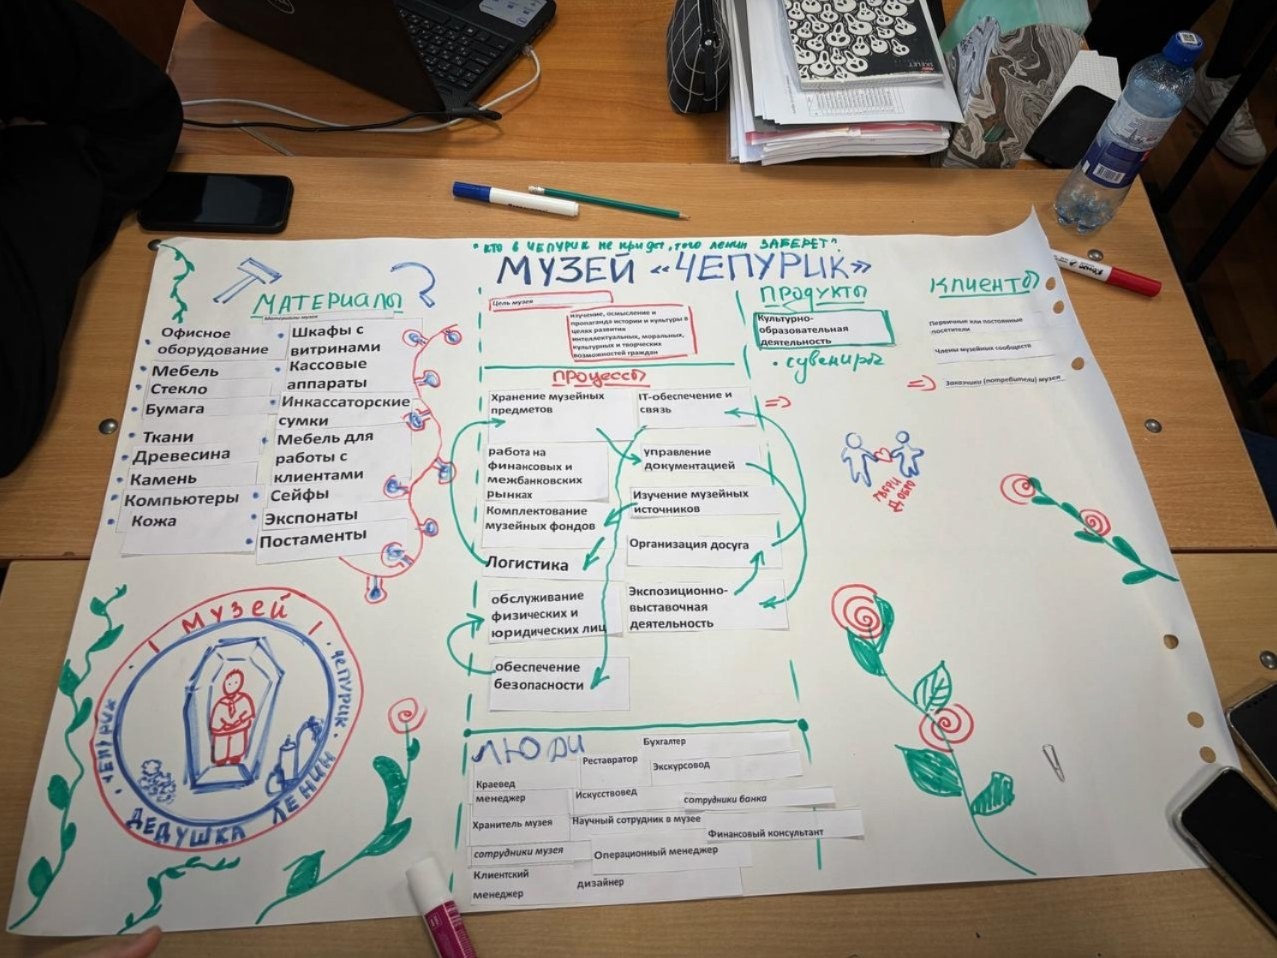 "КТО В ЧЕПУРИК НЕ придет, того ленин ЗАБЕРЕТ".
МУЗЕЙ «ЧЕПУРИК»
МАТЕРИАЛЫ
Офисное
оборудование
Мебель
Стекло
Бумага
Ткани
Древесина
Камень
Компьютеры
Кожа
Шкафы с
витринами
Кассовые
аппараты
Инкассаторские
сумки
Мебель для
работы с
клиентами
Сейфы
Экспонаты
Постаменты
Цель музея
изучение, осмысление и
пропаганда истории и культуры в
целях развития
интеллектуальных, моральных,
культурных и творческих
возможностей граждан
ПРОЦЕССЫ
Хранение музейных
предметов
работа на
финансовых и
межбанковских
рынках
Комплектование
музейных фондов
Логистика
обслуживание
физических и
юридических лиц
обеспечение
безопасности
IT-обеспечение и
связь
управление
документацией
Изучение музейных
источников
Организация досуга
Экспозиционно-
выставочная
деятельность
ПРОДУКТЫ
Культурно-
образовательная
деятельность
• сувениры
КЛИЕНТЫ
Первичные или постоянные
посетители
Члены музейных сообществ
Заказчики (потребители) музея
ТВОРИ
ДОБРО
МУЗЕЙ
ЧЕПУРИК
ЧЕПУРИК
ДЕДУШКА ЛЕНИН
ЛЮДИ
Бухгалтер
Реставратор
Экскурсовод
Краевед
менеджер
Искусствовед
сотрудники банка
Хранитель музея
Научный сотрудник в музее
Финансовый консультант
сотрудники музея
Операционный менеджер
Клиентский
менеджер
дизайнер